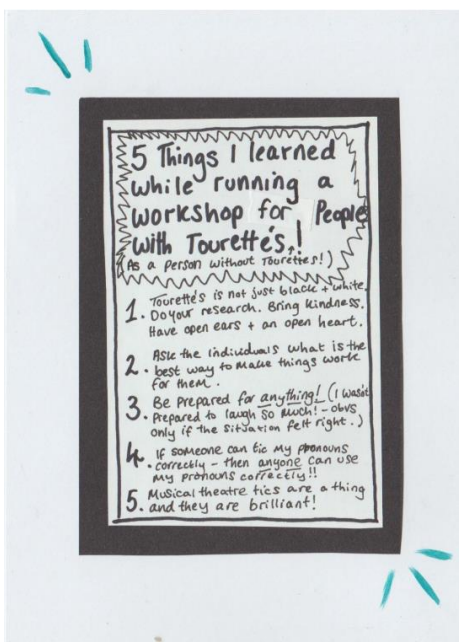 5 Things I learned
while running a
workshop for People
with Tourette's!
(As a person without Tourettes!)
1. Tourette's is not just black + white.
Do your research. Bring kindness.
Have open ears + an open heart.
2. Ask the individuals what is the
best way to make things work
for them.
3. Be prepared for anything! (I wasn't
prepared to laugh so much! - obvs
only if the situation felt right.)
4. If someone can tic my pronouns
correctly - then anyone can use
my pronouns correctly!!
5. Musical theatre tics are a thing
and they are brilliant!